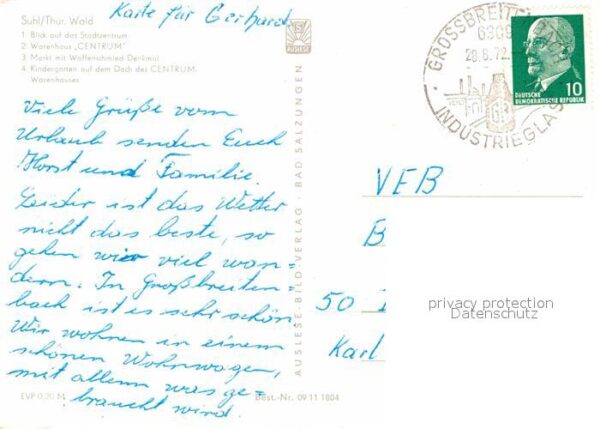 Suhl/Thür. Wald
1 Blick auf das Stadtzentrum
2 Warenhaus „CENTRUM"
3 Markt mit Waffenschmied-Denkmal
4 Kindergarten auf dem Dach des CENTRUM-
Warenhauses
Karte für Gerhard
AUSLESE
Viele Grüße vom
Urlaub senden Euch
Horst und Familie.
Leider ist das Wetter
nicht das beste, so
gehen wir viel wan=
dern. In Großbreiten=
bach ist es sehr schön.
Wir wohnen in einem
schönen Wohnwagen,
mit allem was ge=
braucht wird.
EVP 0,20 M
Best.-Nr. 09 11 1804
AUSLESE-BILD-VERLAG · BAD SALZUNGEN
GROSSBREITENB
28.6.72
INDUSTRIEGLAS
10
DEUTSCHE
DEMOKRATISCHE REPUBLIK
VEB
B
50
Karl
privacy protection
Datenschutz